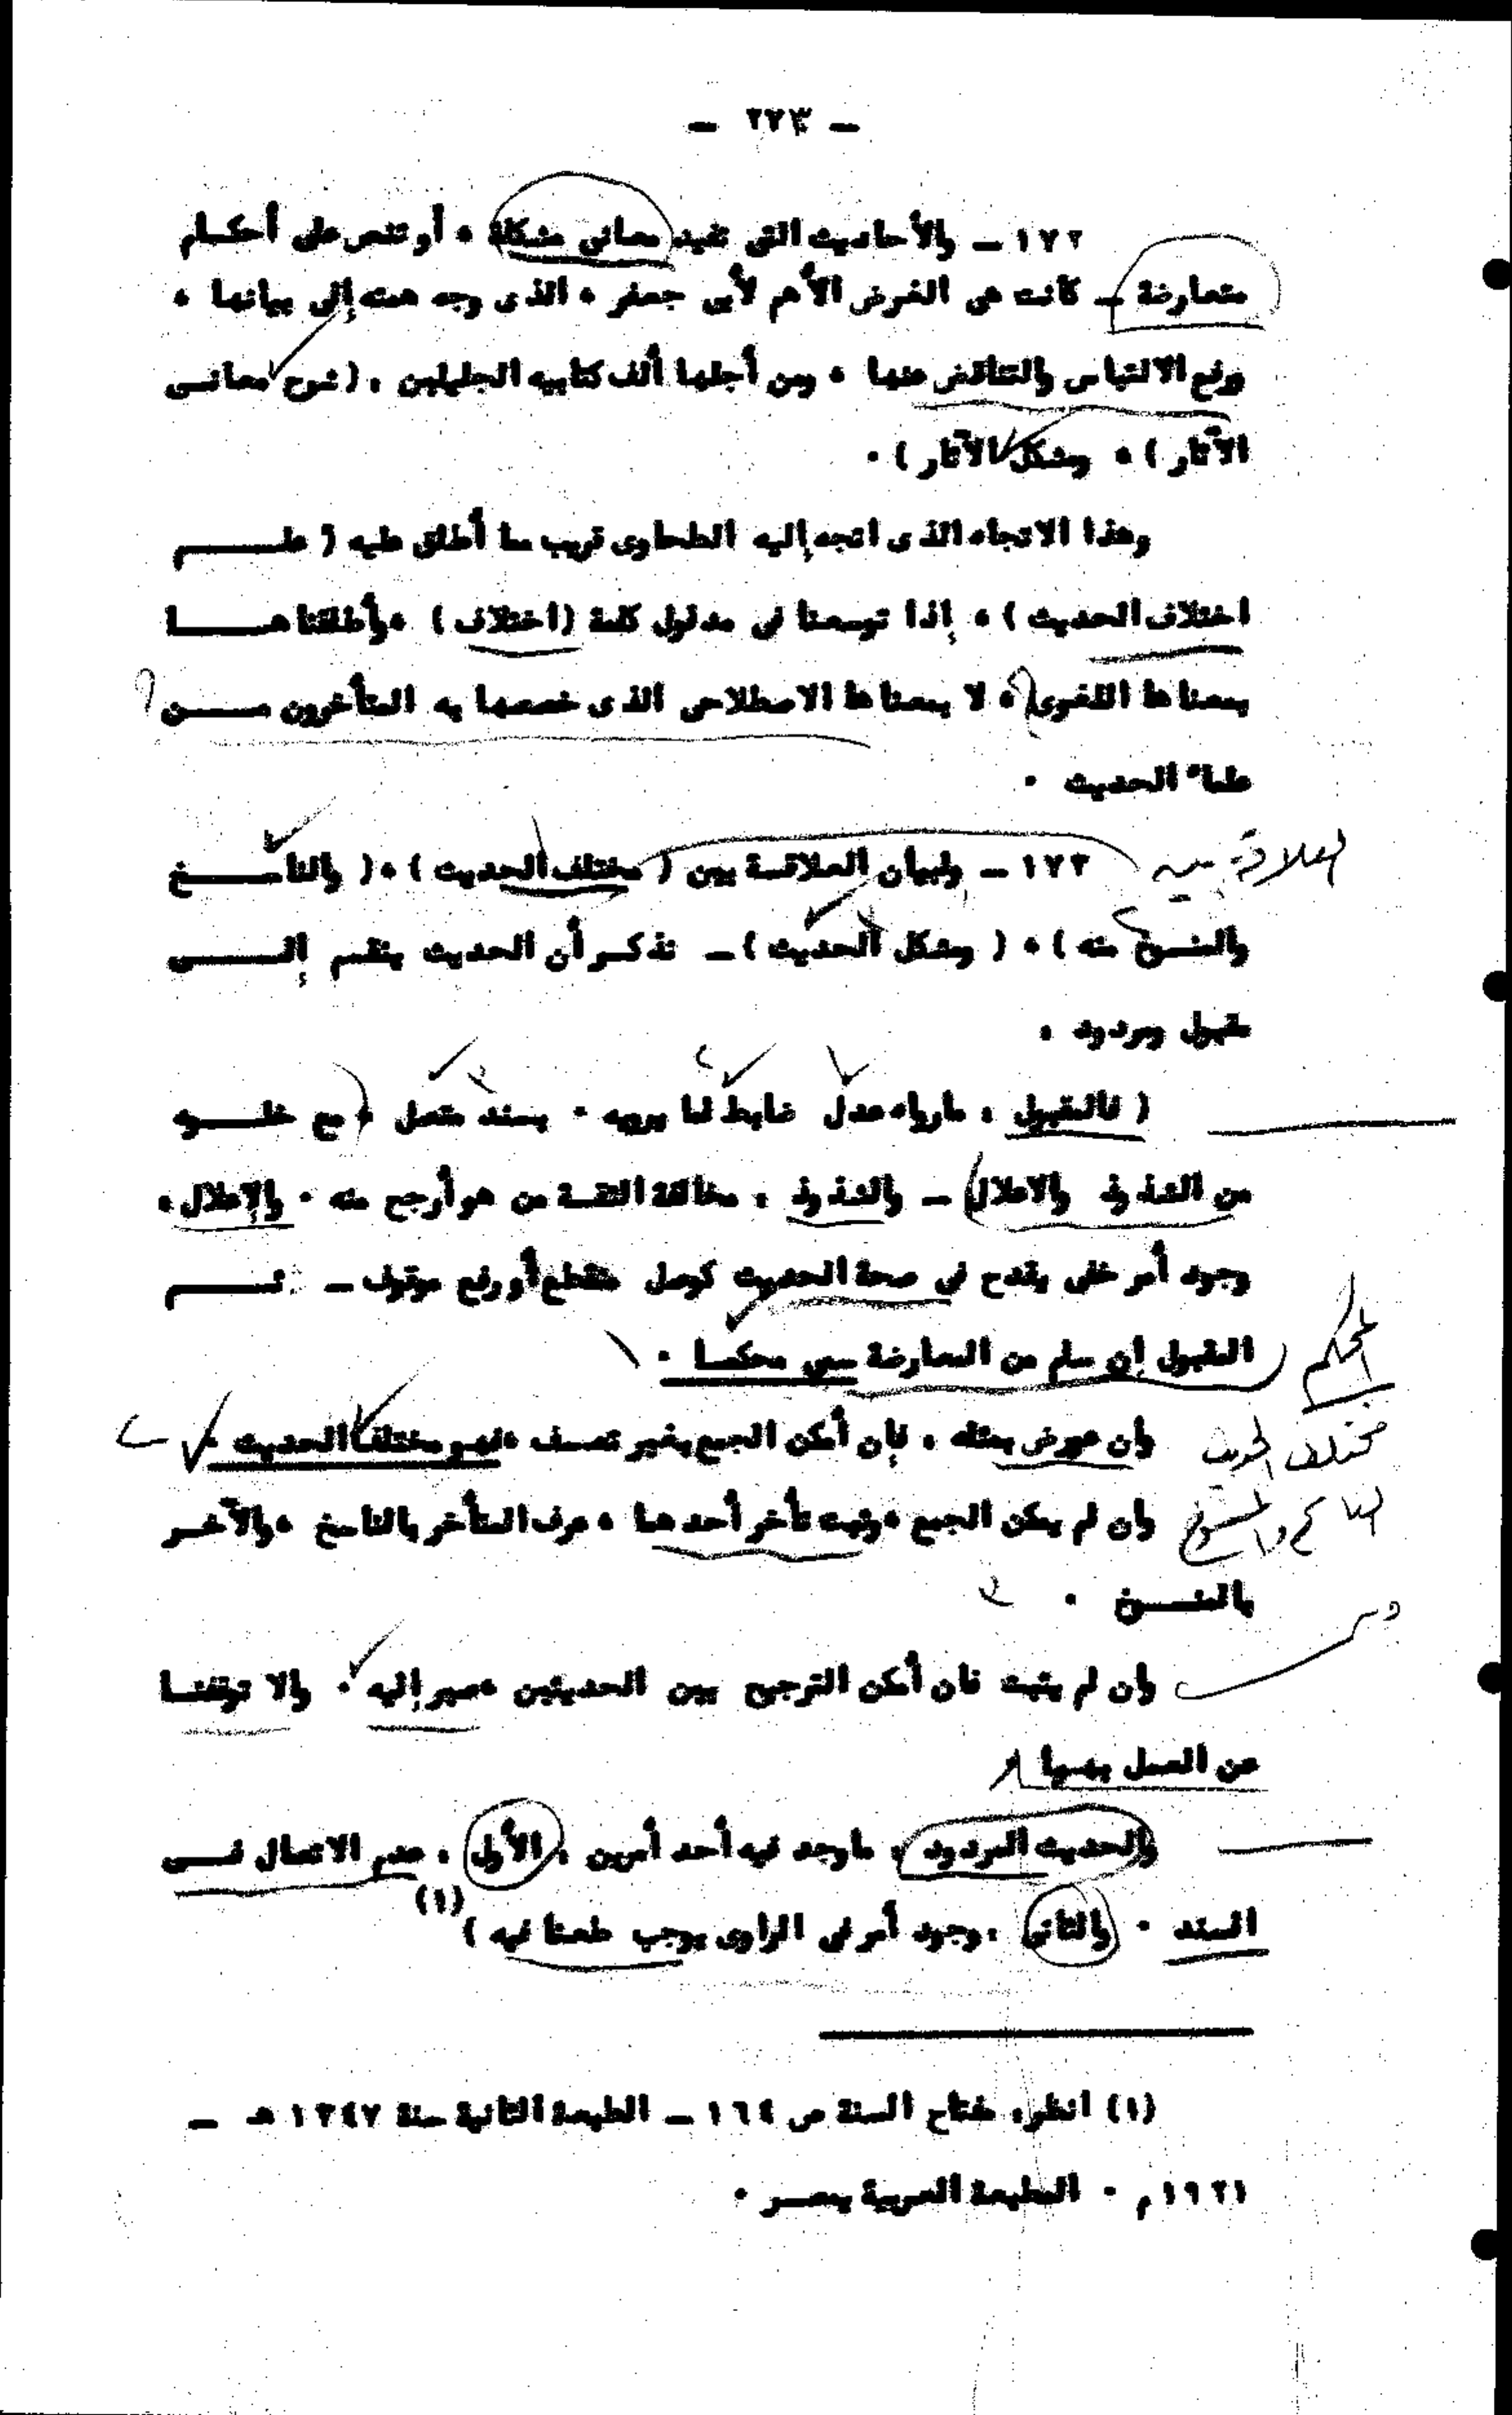 — ٢٢٣ —
١٧٢ — والأحاديث التى تفيد معانى مشكلة ، أو تنص على أحكـام
متعارضة — كانت هى الغرض الأهم لأبى جعفر ، الذى وجه همته إلى بيانها ،
ورفع الالتباس والتناقض عنها ، ومن أجلها ألف كتابيه الجليلين ، (شرح معانـى
الآثار ) ، ومشكل الآثار ) .
وهذا الاتجاه الذى اتجه إليه الطحاوى قريب مما أطلق عليه ( علـــم
اختلاف الحديث ) ، إذا توسعنا فى مدلول كلمة (اختلاف ) ، وأطلقناهـــا
بمعناها اللغوى ، لا بمعناها الاصطلاحى الذى خصصها به المتأخرون مــن
علماء الحديث .
١٧٣ — ولبيان العلاقـة بين ( مختلف الحديث ) ، ( والناســخ
العلاقة بين
والمنسوخ منه ) ، ( ومشكل الحديث ) — نذكـر أن الحديث ينقسم إلـــى
مقبول ومردود .
( فالمقبول : مارواه عدل ضابط لما يرويه . بسند متصل ، مع خلـــوه
من الشذوذ والاعلال ) — والشذوذ : مخالفة الثقـة من هو أرجح منه . والإعلال :
وجود أمر خفى يقدح فى صحة الحديث كوصل منقطع أو رفع موقوف — ثـــم
المقبول إن سلم من المعارضة سمى محكمـا .
المحكم
وان عورض بمثله ، فإن أمكن الجمع بغير تعسـف ، فهـو مختلف الحديث .
مختلف الحديث
وان لم يمكن الجمع ، وثبت تأخر أحدهما ، عرف المتأخر بالناسخ ، والآخـر
الناسخ والمنسوخ
بالمنســوخ .
وان لم يثبت فان أمكن الترجيح بين الحديثين ، صير إليه . والا توقفنـا
عن العمل بهما .
والحديث المردود : ماوجد فيه أحد أمرين : الأول : عدم الاتصال فـــى
السند . والثانى : وجود أمر فى الراوى يوجب طعنا فيه ) (١)
(١) انظر: مفتاح السنة ص ١٦٤ — الطبعة الثانية سنة ١٣٤٧ هـ —
١٩٢١ م . المطبعة العربية بمصـر .